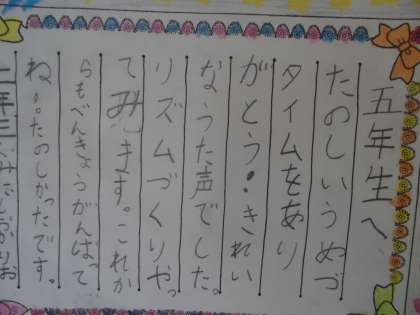 五年生へ
たのしいうめづ
タイムをあり
がとう・きれい
なうた声でした。
リズムづくりやっ
てみます。これか
らもべんきょうがんばって
ね。たのしかったです。
二年三くみ